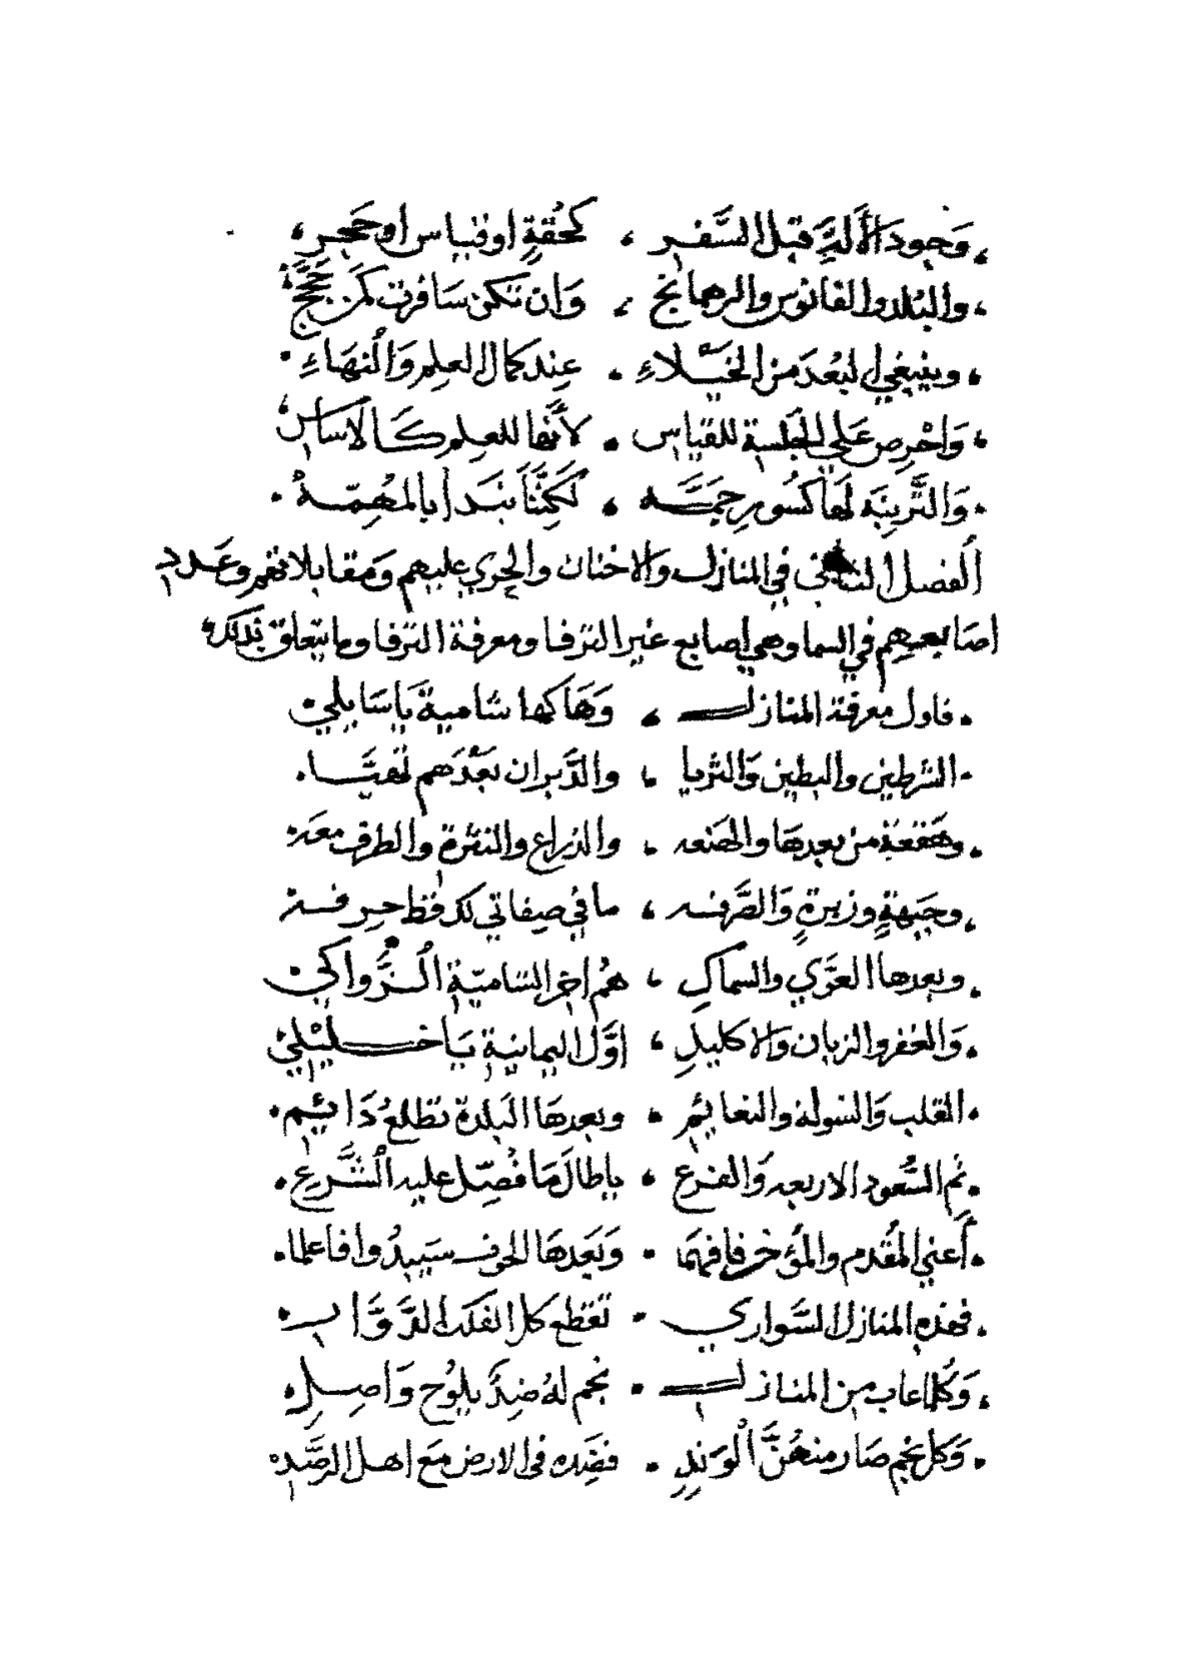 وَجود الأَلةِ قبل السَّفر ، كحُقةٍ او قياس او حَجرِ ،
والبُلد والفانوس والرهمانج ، وَان تكن سَافرت كمَن حَجَّجْ
وينبغي البُعدَ من الخيَلاءِ ، عِند كمال العِلمِ وَالنهَاءِ
وَاحْرِص عَلى الجَلسة للقياس ، لأنَّها للعِلم كَالأسَاس
وَالتَّرِبيَه لهَا كسُور جمَّه ، لَكِنَّنَا نبدأ بالمُهِمّهْ
الفصل الثاني في المنازل والاخنان والجري عليهم وَمقابلاتهم وعَدد
اصَابعهِم في السما وهي اصابع غير الترفا ومعرفة الترفا وما يتعلق بذلك
فاول معرفة المنازل ، وَهَاكها شاميةً يَا سَايلي
الشرطين والبطين وَالثريا ، والدَّبران بَعْدَهم تهَيَّا
وهَقعَة من بعدِهَا والهنعه ، والذراع والنثرة والطرف معَه
وجَبهةٍ وزبرةٍ وَالصَّرفه ، ما في صِفاتي لك قط حرفه
وبعدها العَوَّي والسماكِ ، هُم اخر الشاميّة الزَّواكي
وَالغفر والزبان وَالاكليلِ ، اوَّل اليمانية يَا خليْلِي
القلب وَالشولة والنعايم ، وبعدهَا البَلدة تطلعُ دَائِم
ثم السُّعود الاربعه وَالفرع ، يا طالَ مَا فُصِّل عليه الشَّرعِ
أعني المُقدم والمُؤخر فافهمَا ، وَبَعدهَا الحوف سيبدُوا فاعلما
فهذه المنازل السَّواري ، تقطع كل الفلك الدَّوَّار
وَكُلما غاب من المنازل ، نجم لهُ ضِدٌّ يلوُح وَاصِلِ
وَكل نجم صَار منهُنَّ الْوَتدِ ، فضِده في الارض مَع اهل الرصَد